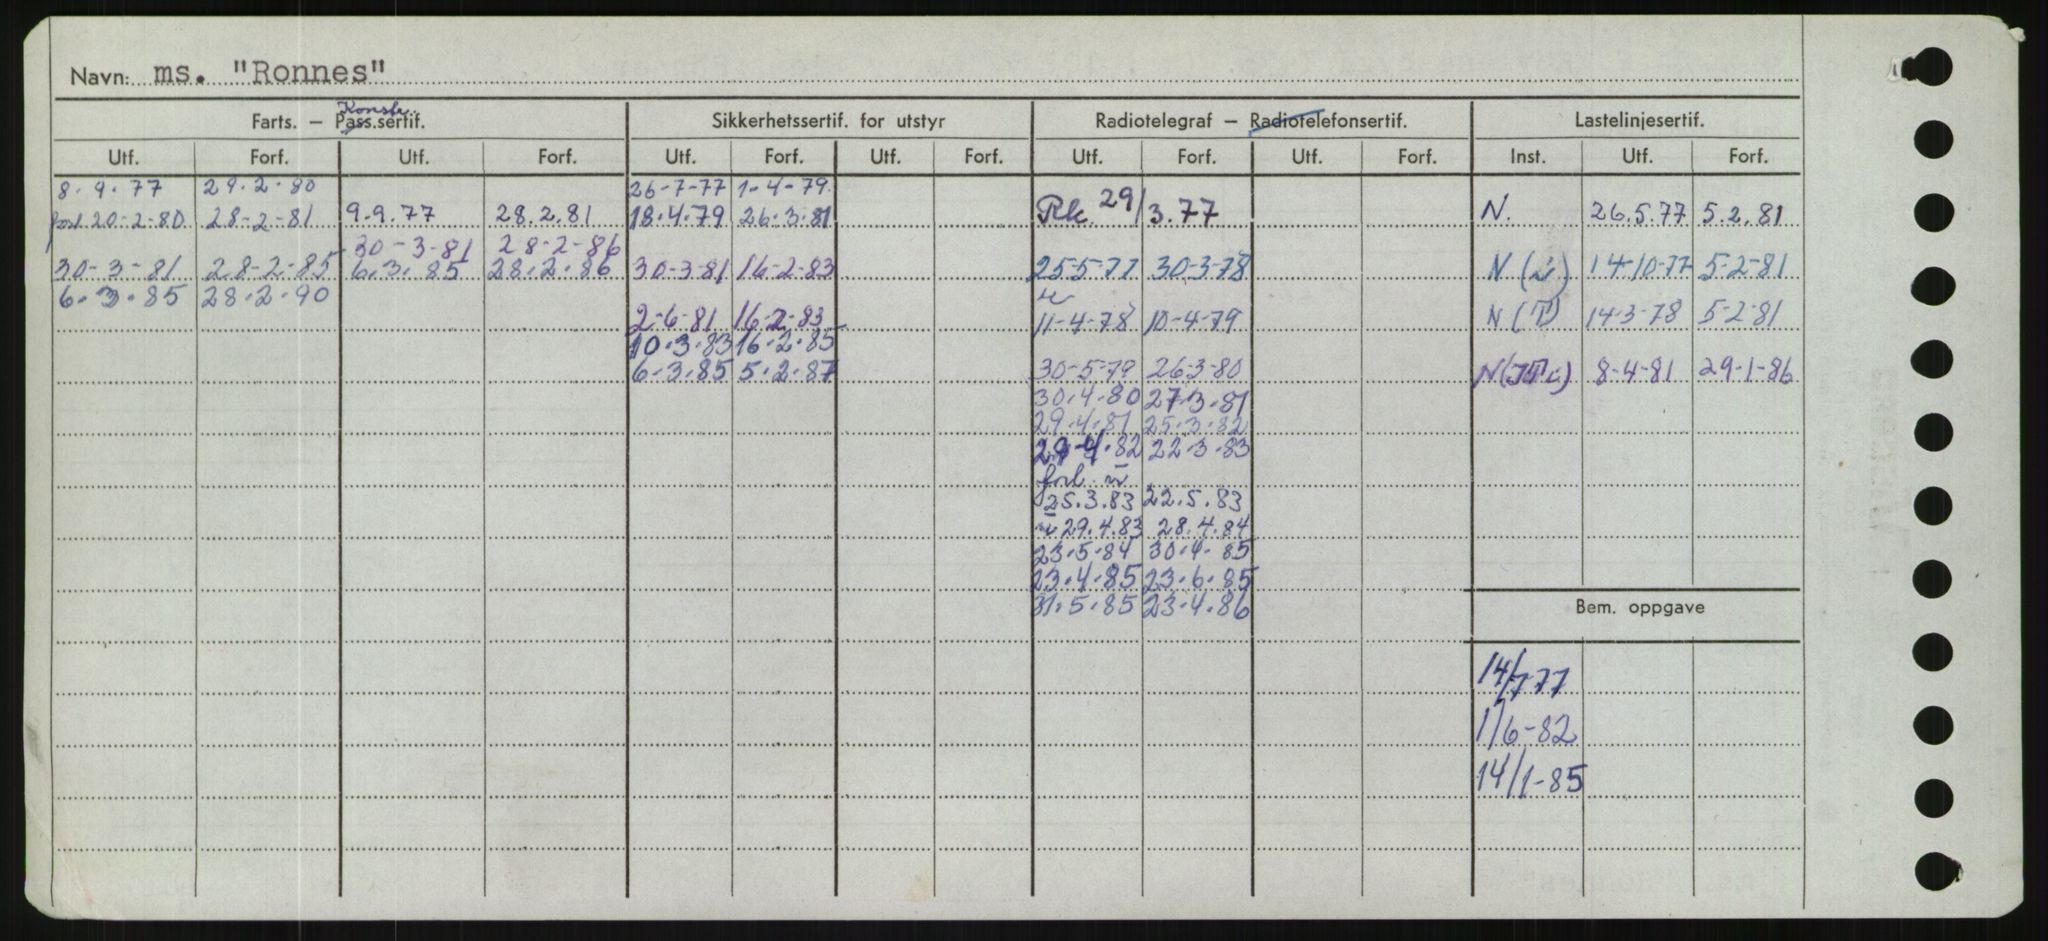 Navn: ms. "Ronnes"
Konstr.
Farts. – Pass.sertif. Sikkerhetssertif. for utstyr Radiotelegraf – Radiotelefonsertif. Lastelinjesertif.
Utf. Forf. Utf. Forf. Utf. Forf. Utf. Forf. Utf. Forf. Utf. Forf. Inst. Utf. Forf.
8.9.77 29.2.80 26-7-77 1-4-79
forl 20-2-80 28-2-81 9.9.77 28.2.81 18.4.79 26.3.81 Rk. 29/3.77 N. 26.5.77 5.2.81
30-3-81 28-2-86
30-3-81 28-2-85 6.3.85 28.2.86 30-3-81 16-2-83 25-5-77 30-3-78 N (ū) 14-10-77 5-2-81
6.3.85 28.2.90
2-6-81 16-2-83 11-4-78 10-4-79 N (T) 14-3-78 5-2-81
10.3.83 16.2.85
6.3.85 5.2.87 30-5-79 26-3-80 8-4-81 29-1-86
30.4.80 27.3.81
29.4.81 25.3.82
29.4.82 22.3.83
forl. ū
25.3.83 22.5.83
ū 29.4.83 28.4.84
23.5.84 30.4.85
23.4.85 23.6.85
31.5.85 23.4.86
Bem. oppgave
14/7 77
1/6-82
14/1-85